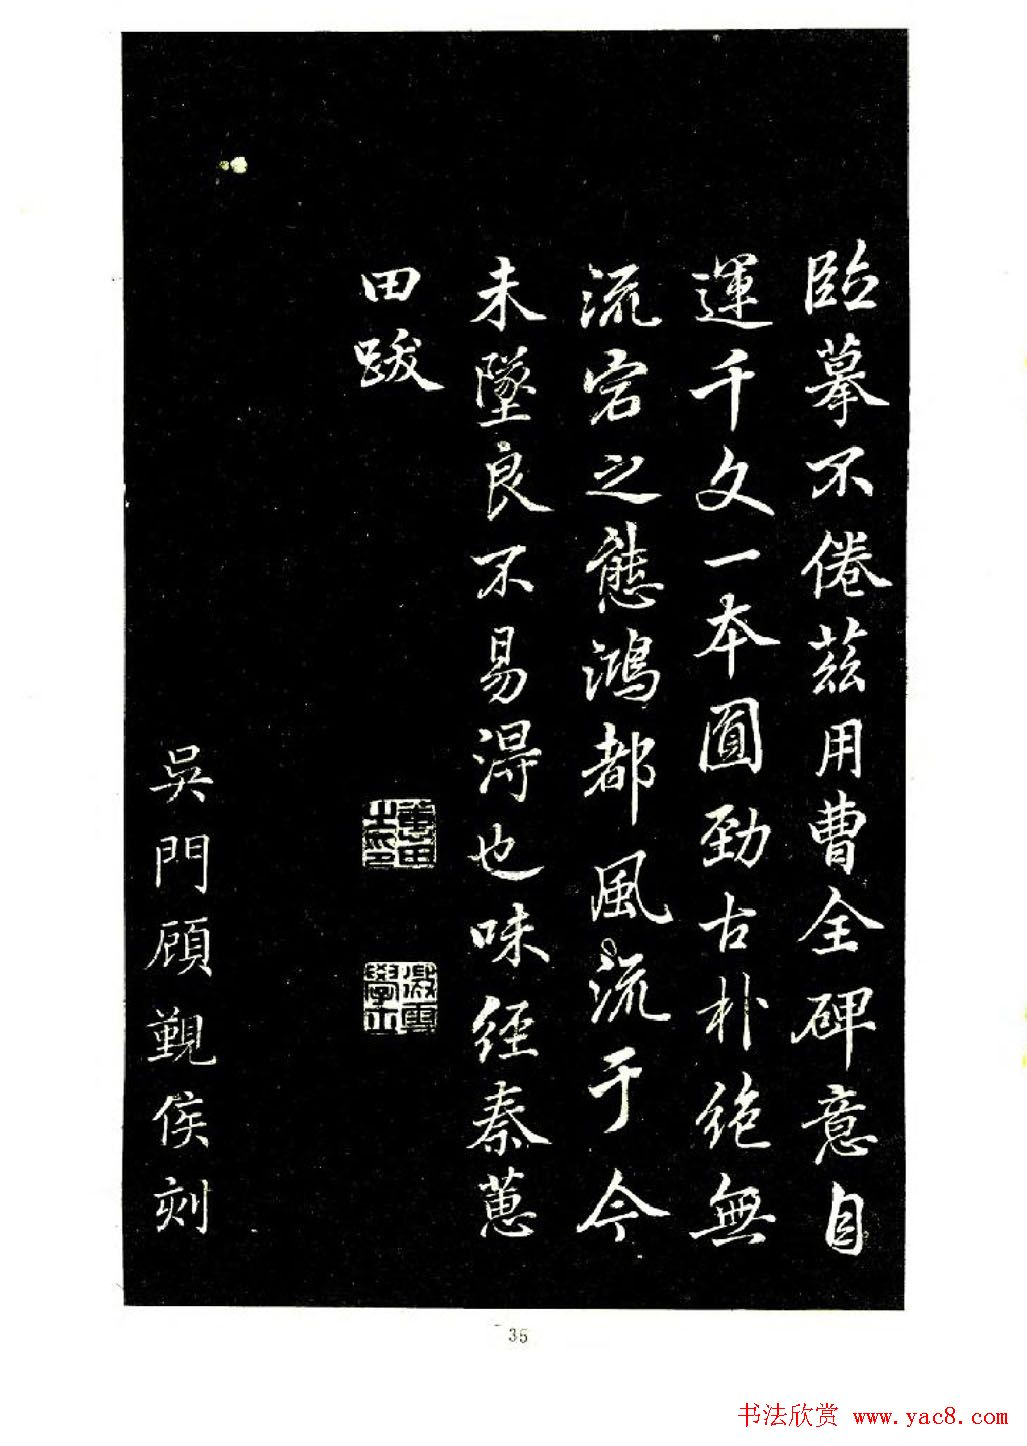 臨摹不倦茲用曹全碑意自
運千文一本圓勁古朴絶無
流宕之態鴻都風流于今
未墜良不易得也味經秦蕙
田跋
蕙田之印
吳門顧覲侯刻
35
书法欣赏 www.yac8.com